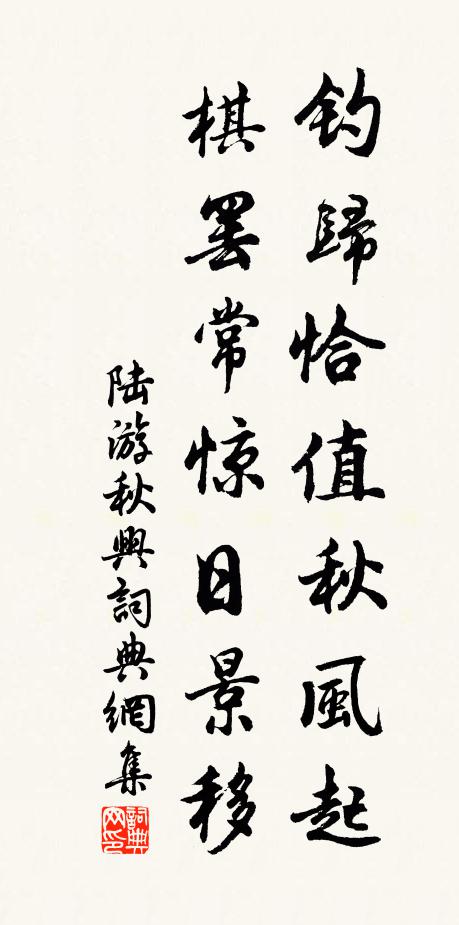 钓歸恰值秋風起
棋罢常惊日景移
陆游秋興詞典網集
詞典网印